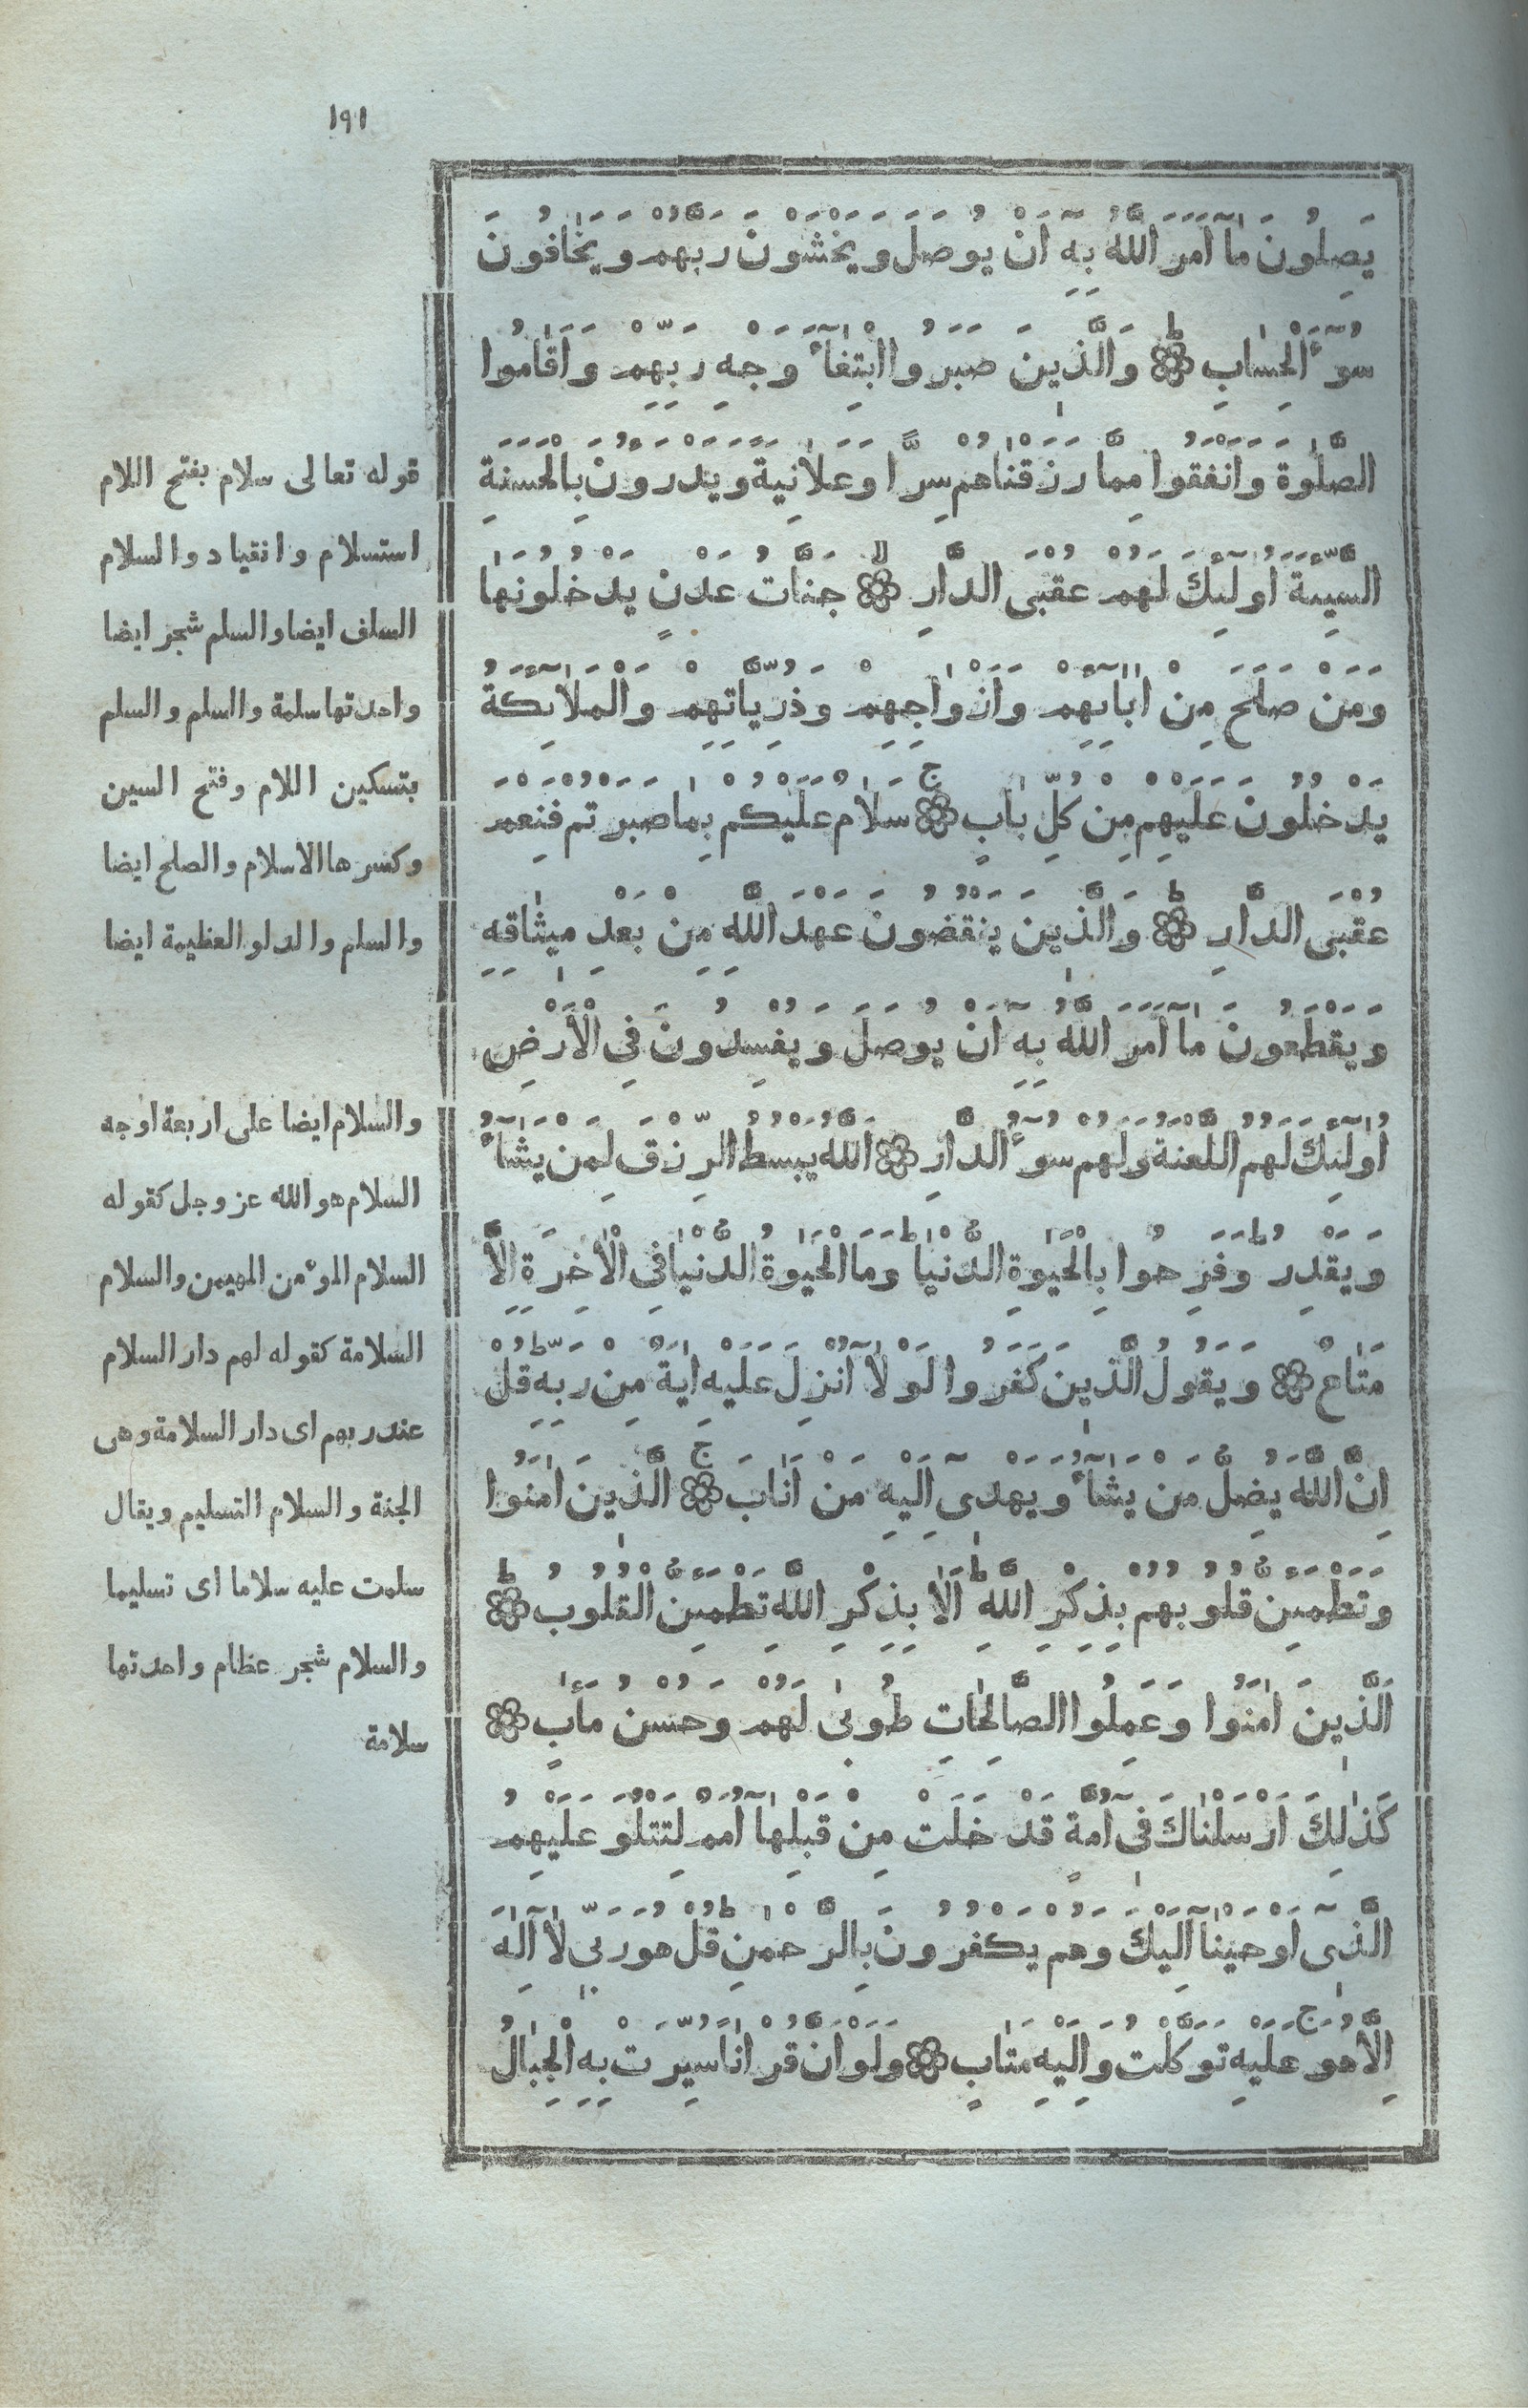 ١٩١
يَصِلُونَ مَٓا اَمَرَ اللّٰهُ بِهِٓ اَنْ يُوصَلَ وَيَخْشَوْنَ رَبَّهُمْ وَيَخَافُونَ
سُوٓءَ الْحِسَابِ ۞ وَالَّذِينَ صَبَرُوا ابْتِغَآءَ وَجْهِ رَبِّهِمْ وَاَقَامُوا
الصَّلٰوةَ وَاَنْفَقُوا مِمَّا رَزَقْنَاهُمْ سِرًّا وَعَلَانِيَةً وَيَدْرَؤُنَ بِالْحَسَنَةِ
السَّيِّئَةَ اُولٰٓئِكَ لَهُمْ عُقْبَى الدَّارِ ۞ جَنَّاتُ عَدْنٍ يَدْخُلُونَهَا
وَمَنْ صَلَحَ مِنْ اٰبَآئِهِمْ وَاَزْوَاجِهِمْ وَذُرِّيَّاتِهِمْ وَالْمَلَآئِكَةُ
يَدْخُلُونَ عَلَيْهِمْ مِنْ كُلِّ بَابٍ ۞ سَلَامٌ عَلَيْكُمْ بِمَا صَبَرْتُمْ فَنِعْمَ
عُقْبَى الدَّارِ ۞ وَالَّذِينَ يَنْقُضُونَ عَهْدَ اللّٰهِ مِنْ بَعْدِ مِيثَاقِهِ
وَيَقْطَعُونَ مَٓا اَمَرَ اللّٰهُ بِهِٓ اَنْ يُوصَلَ وَيُفْسِدُونَ فِى الْاَرْضِ
اُولٰٓئِكَ لَهُمُ اللَّعْنَةُ وَلَهُمْ سُوٓءُ الدَّارِ ۞ اَللّٰهُ يَبْسُطُ الرِّزْقَ لِمَنْ يَشَآءُ
وَيَقْدِرُ وَفَرِحُوا بِالْحَيٰوةِ الدُّنْيَا وَمَا الْحَيٰوةُ الدُّنْيَا فِى الْاٰخِرَةِ اِلَّا
مَتَاعٌ ۞ وَيَقُولُ الَّذِينَ كَفَرُوا لَوْلَٓا اُنْزِلَ عَلَيْهِ اٰيَةٌ مِنْ رَبِّهِ قُلْ
اِنَّ اللّٰهَ يُضِلُّ مَنْ يَشَآءُ وَيَهْدِىٓ اِلَيْهِ مَنْ اَنَابَ ۞ الَّذِينَ اٰمَنُوا
وَتَطْمَئِنُّ قُلُوبُهُمْ بِذِكْرِ اللّٰهِ اَلَا بِذِكْرِ اللّٰهِ تَطْمَئِنُّ الْقُلُوبُ ۞
اَلَّذِينَ اٰمَنُوا وَعَمِلُوا الصَّالِحَاتِ طُوبٰى لَهُمْ وَحُسْنُ مَاٰبٍ ۞
كَذٰلِكَ اَرْسَلْنَاكَ فِىٓ اُمَّةٍ قَدْ خَلَتْ مِنْ قَبْلِهَٓا اُمَمٌ لِتَتْلُوَ عَلَيْهِمُ
الَّذِىٓ اَوْحَيْنَٓا اِلَيْكَ وَهُمْ يَكْفُرُونَ بِالرَّحْمٰنِ قُلْ هُوَ رَبِّى لَٓا اِلٰهَ
اِلَّا هُوَ عَلَيْهِ تَوَكَّلْتُ وَاِلَيْهِ مَتَابِ ۞ وَلَوْ اَنَّ قُرْاٰنًا سُيِّرَتْ بِهِ الْجِبَالُ
قوله تعالى سلام بفتح اللام
استسلام وانقياد والسلام
السلف ايضا والسلم شجر ايضا
واحدتها سلمة والسلم والسلم
بتسكين اللام وفتح السين
وكسرها الاسلام والصلح ايضا
والسلم والدلو العظيمة ايضا
والسلام ايضا على اربعة اوجه
السلام هو الله عز وجل كقوله
السلام المؤمن المهيمن والسلام
السلامة كقوله لهم دار السلام
عند ربهم اى دار السلامة وهى
الجنة والسلام التسليم ويقال
سلمت عليه سلاما اى تسليما
والسلام شجر عظام واحدتها
سلامة